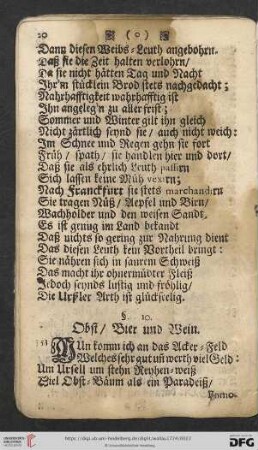 20 ❁ (o) ❁
Dann diesen Weibs-Leuth angebohrn.
Daß sie die Zeit halten verlohrn/
Da sie nicht hätten Tag und Nacht
Ihr'n stücklein Brod stets nachgedacht;
Nahrhafftigkeit wahrhafftig ist
Ihn angeleg'n zu aller frist;
Sommer und Winter gilt ihn gleich
Nicht zärtlich seynd sie/ auch nicht weich:
Im Schnee und Regen gehn sie fort
Früh/ spath/ sie handlen hier und dort/
Daß sie als ehrlich Leuth passirn
Sich lassen keine Müh vexirn;
Nach Franckfurt sie stets marchandirn
Sie tragen Nüß/ Aepfel und Birn/
Wachholder und den weisen Sandt,
Es ist genug im Land bekandt
Daß nichts so gering zur Nahrung dient
Das diesen Leuth kein Vortheil bringt:
Sie nähren sich in saurem Schweiß
Das macht ihr ohnermüdter Fleiß
Jedoch seynds lustig und fröhlig/
Die Urßler Arth ist glückselig.
§. 10.
Obst/ Bier und Wein.
NUn komm ich an das Acker-Feld
Welches sehr gut uñ werth viel Geld:
Um Ursell um stehn Reyhen-weiß
Viel Obst-Bäum als ein Paradeiß/
http://digi.ub.uni-heidelberg.de/diglit/wallau1724/0027
© Universitätsbibliothek Heidelberg
gefördert durch die
DFG